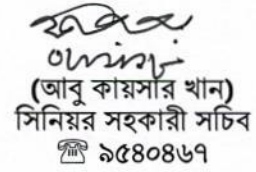 (আবু কায়সার খান)
সিনিয়র সহকারী সচিব
☎ ৯৫৪০৪৬৭